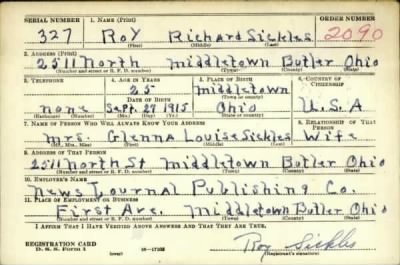 SERIAL NUMBER 1. NAME (Print) ORDER NUMBER
327 Roy Richard Sickles 2090
(First) (Middle) (Last)
2. ADDRESS (Print)
2511 North Middletown Butler Ohio
(Number and street or R. F. D. number) (Town) (County) (State)
3. TELEPHONE 4. AGE IN YEARS 5. PLACE OF BIRTH 6. COUNTRY OF CITIZENSHIP
25 Middletown
DATE OF BIRTH (Town or county)
none Sept. 27 1915 Ohio U.S.A
(Exchange) (Number) (Mo.) (Day) (Yr.) (State or country)
7. NAME OF PERSON WHO WILL ALWAYS KNOW YOUR ADDRESS 8. RELATIONSHIP OF THAT PERSON
Mrs. Glenna Louise Sickles Wife
(Mr., Mrs., Miss) (First) (Middle) (Last)
9. ADDRESS OF THAT PERSON
2511 North St Middletown Butler Ohio
(Number and street or R. F. D. number) (Town) (County) (State)
10. EMPLOYER'S NAME
News Journal Publishing Co.
11. PLACE OF EMPLOYMENT OR BUSINESS
First Ave. Middletown Butler Ohio
(Number and street or R. F. D. number) (Town) (County) (State)
I AFFIRM THAT I HAVE VERIFIED ABOVE ANSWERS AND THAT THEY ARE TRUE.
REGISTRATION CARD
D. S. S. Form 1 (over) Roy Sickles
(Registrant's signature)